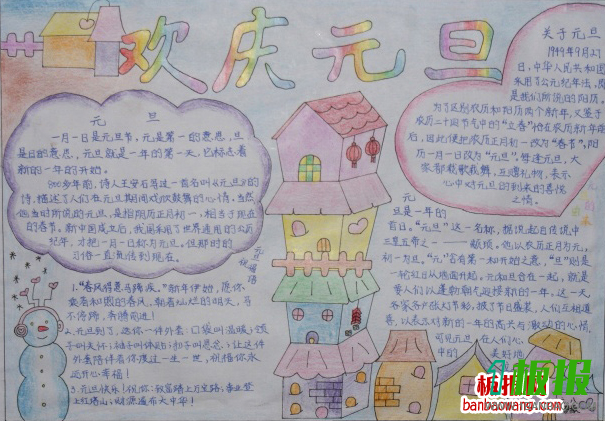 欢庆元旦
元 旦
一月一日是元旦节,元是第一的意思,旦
是日的意思,元旦就是一年的第一天,它标志着
新的一年的开始。
800多年前,诗人王安石写过一首名叫《元旦》的
诗,描述了人们在元旦期间欢欣鼓舞的心情。当然
他当时所说的元旦,是指阴历正月初一,相当于现在
的春节。新中国成立后,我国采用了世界通用的公历
纪年,才把一月一日称为元旦。但那时的
习俗一直流传到现在。
元旦祝福语
1."春风得意马蹄疾"新年伊始,愿你
乘着和煦的春风,朝着灿烂的明天,马
不停蹄,奔腾前进!
2.元旦到了,送你一件外套:口袋叫温暖;领
子叫关怀;袖子叫体贴;扣子叫思念;让这件
外套陪伴着你度过一生一世,祝福你永
远开心幸福!
3.元旦快乐!祝你:致富踏上万宝路,事业登
上红塔山;财源遍布大中华!
关于元旦
1949年9月27
日,中华人民共和国
采用了公元纪年法,
是我们所说的阳历,
为了区别农历和阳历两个新年,又鉴于
农历二十四节气中的"立春"恰在农历新年前
后,因此便把农历正月初一改为"春节",阳
历一月一日改为"元旦"。每逢元旦,大
家都载歌载舞,互赠礼物,表示
心中对元旦的到来的喜悦
之情。
元
旦是一年的
首日。"元旦"这一名称,据说起自传说中
三皇五帝之一——颛顼。他以农历正月为元,
初一为旦。"元"含有第一和开始之意,"旦"则是
一轮红日从地面升起。元和旦合在一起,就是
要人们以蓬勃朝气迎接新的一年。这一天
家家户户张灯节彩,披上节日盛装,人们互相道
喜,以表示对新的一年的高兴与激动的心情。
可见元旦在人们心
中的美好地
板报网
banbaowang.com
板报